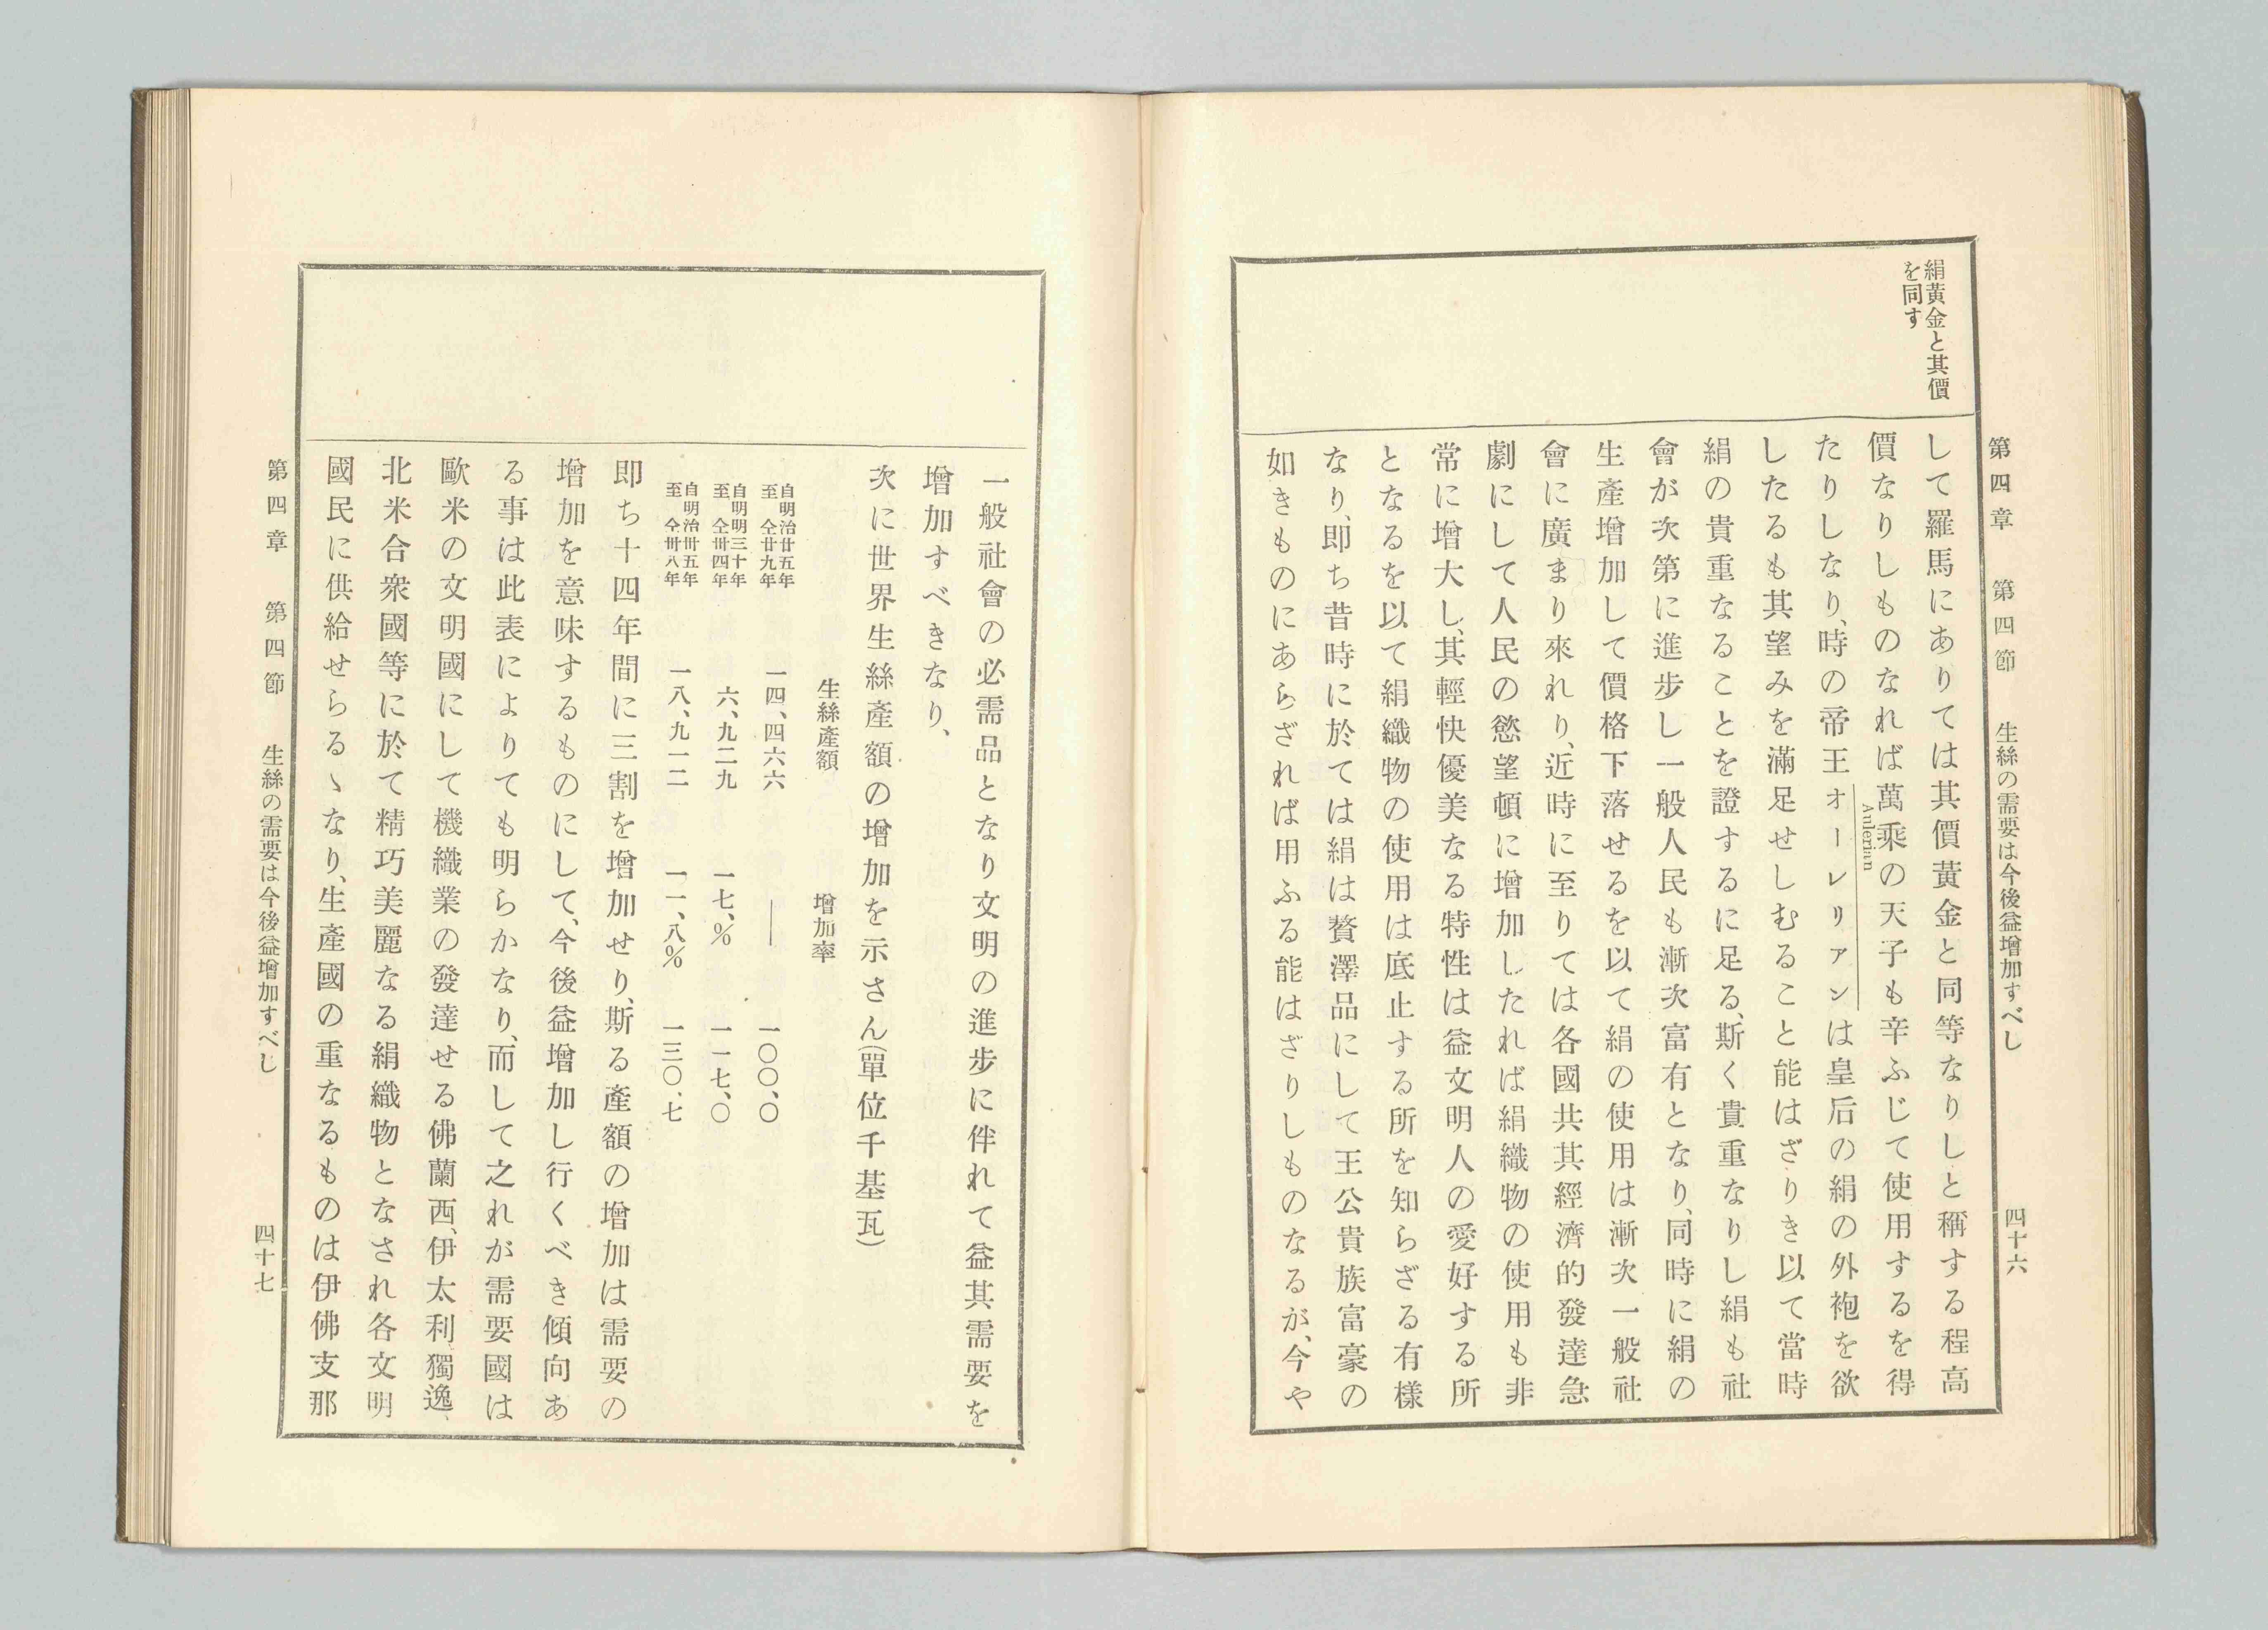 第四章　第四節　生絲の需要は今後益增加すべし　四十六
絹黃金と其價
を同す
して羅馬にありては其價黃金と同等なりしと稱する程高
價なりしものなれば萬乘の天子も辛ふじて使用するを得
たりしなり、時の帝王オーレリアンは皇后の絹の外袍を欲
Aulerian
したるも其望みを滿足せしむること能はざりき以て當時
絹の貴重なることを證するに足る、斯く貴重なりし絹も社
會が次第に進步し一般人民も漸次富有となり、同時に絹の
生產增加して價格下落せるを以て絹の使用は漸次一般社
會に廣まり來れり、近時に至りては各國共其經濟的發達急
劇にして人民の慾望頓に增加したれば絹織物の使用も非
常に增大し、其輕快優美なる特性は益文明人の愛好する所
となるを以て絹織物の使用は底止する所を知らざる有樣
なり、卽ち昔時に於ては絹は贅澤品にして王公貴族富豪の
如きものにあらざれば用ふる能はざりしものなるが、今や
一般社會の必需品となり文明の進步に伴れて益其需要を
增加すべきなり、
次に世界生絲產額の增加を示さん(單位千基瓦)
生絲產額　增加率
自明治廿五年
至仝廿九年　一四、四六六　——　一〇〇、〇
自明明三十年
至仝卅四年　六、九二九　一七、%　一一七、〇
自明治卅五年
至仝卅八年　一八、九一二　一一、八%　一三〇、七
卽ち十四年間に三割を增加せり、斯る產額の增加は需要の
增加を意味するものにして、今後益增加し行くべき傾向あ
る事は此表によりても明らかなり、而して之れが需要國は
歐米の文明國にして機織業の發達せる佛蘭西、伊太利獨逸、
北米合衆國等に於て精巧美麗なる絹織物となされ各文明
國民に供給せらるゝなり、生產國の重なるものは伊佛支那
第四章　第四節　生絲の需要は今後益增加すべし　四十七